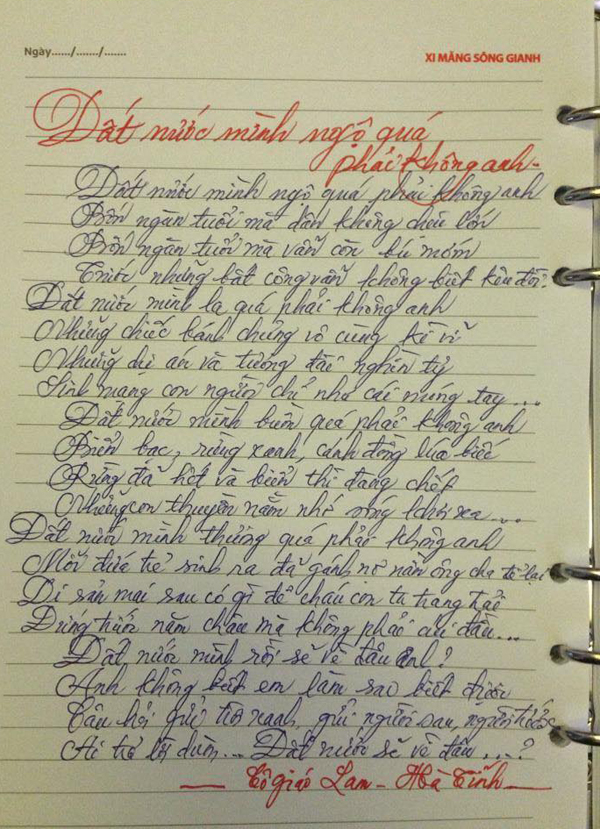 Ngày....../......./.......
XI MĂNG SÔNG GIANH
Đất nước mình ngộ quá
phải không anh -
Đất nước mình ngộ quá phải không anh
Bốn ngàn tuổi mà dân không chịu lớn
Bốn ngàn tuổi mà vẫn còn bú mớm
Trước những bất công vẫn không biết kêu đòi.
Đất nước mình lạ quá phải không anh
Những chiếc bánh chưng vô cùng kì vĩ
Những dự án và tượng đài nghìn tỷ
Sinh mạng con người chỉ như cái móng tay ...
Đất nước mình buồn quá phải không anh
Biển bạc, rừng xanh, cánh đồng lúa biếc
Rừng đã hết và biển thì đang chết
Những con thuyền nằm nhớ sóng khơi xa ...
Đất nước mình thương quá phải không anh
Mỗi đứa trẻ sinh ra đã gánh nợ nần ông cha để lại
Di sản mai sau có gì để cháu con ta trang trải
Đứng trước năm châu mà không phải cúi đầu...
Đất nước mình rồi sẽ về đâu anh?
Anh không biết em làm sao biết được
Câu hỏi gửi trời xanh, gửi người sau, người trước
Ai trả lời dùm... Đất nước sẽ về đâu ...?
Cô giáo Lam - Hà Tĩnh